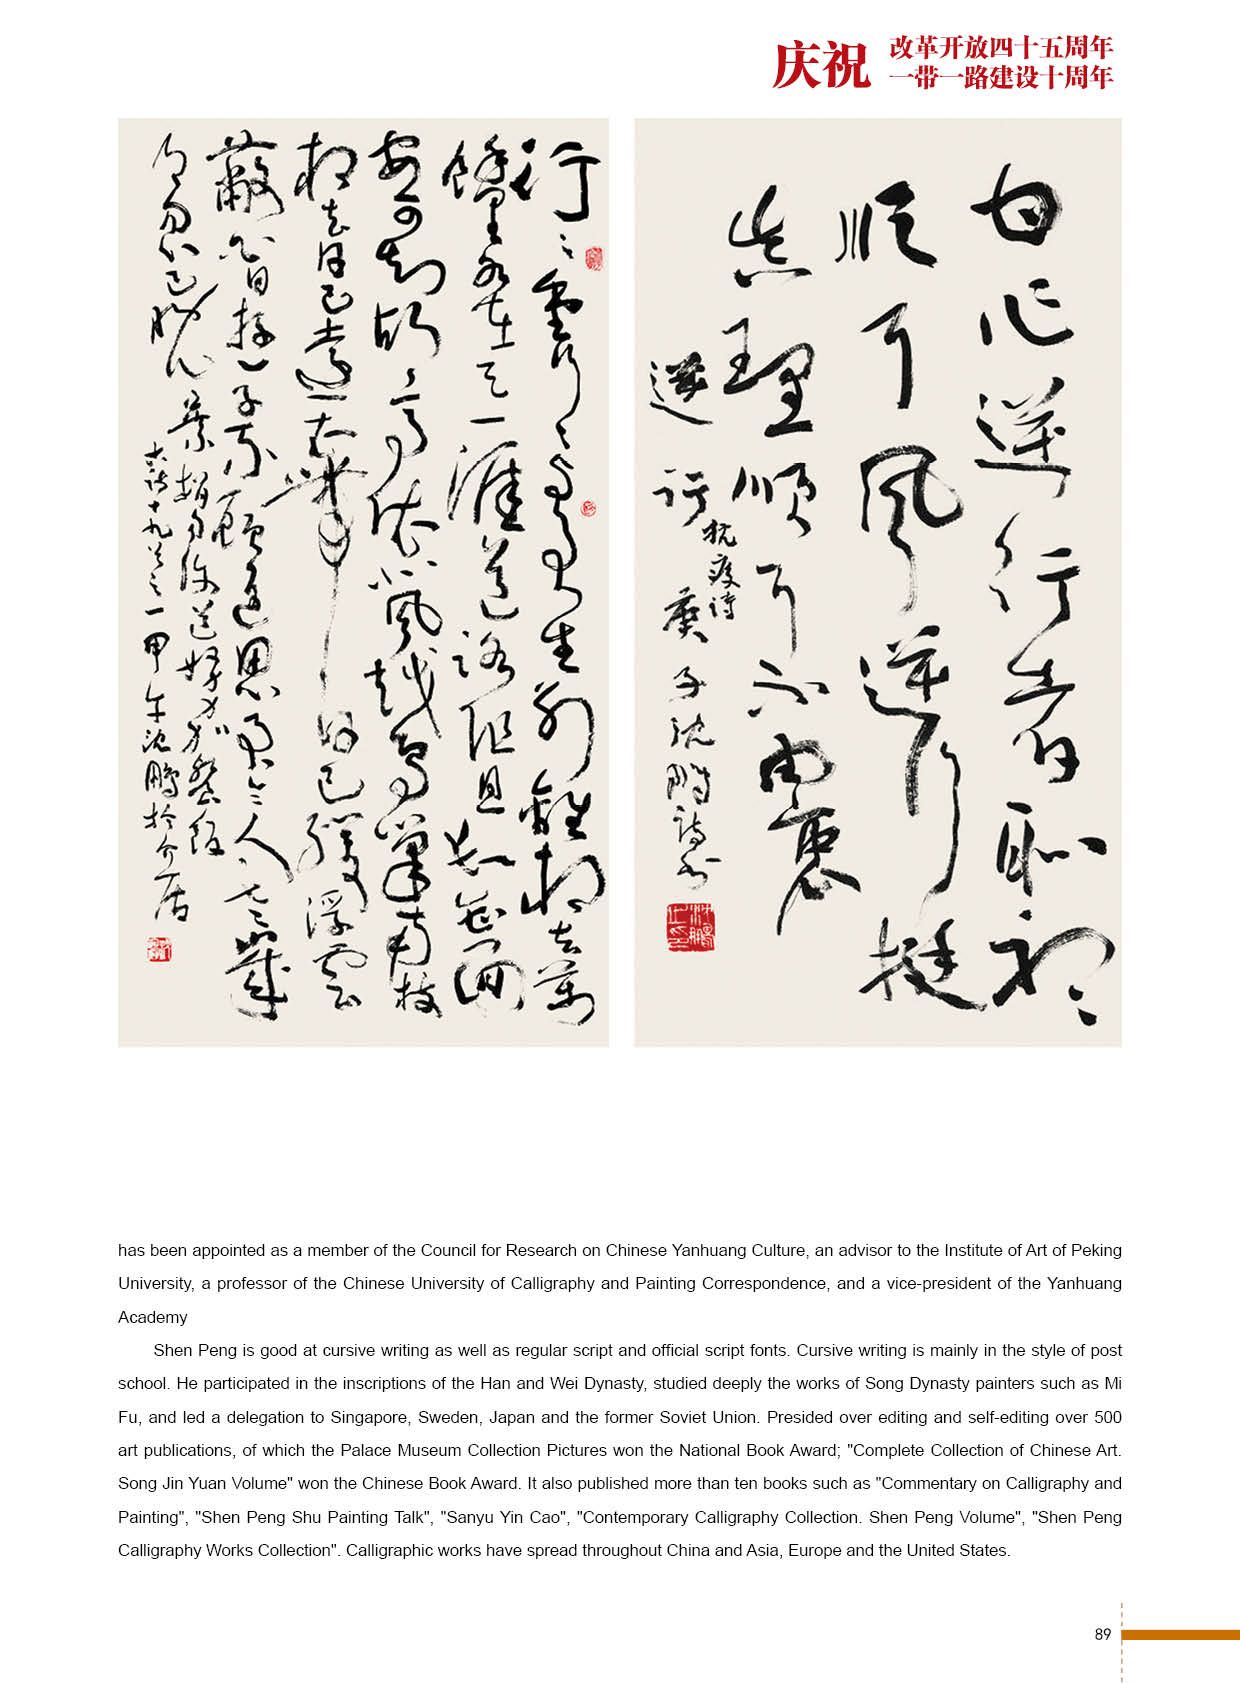 庆祝
改革开放四十五周年
一带一路建设十周年
行行重行行与君生别離相去萬
餘里各在天一涯道路阻且長会面
安可知胡马依北風越鸟巢南枝
相去日已遠衣带日已缓浮雲
蔽白日游子不顧返思君令人老歲
月忽已晚棄捐勿復道努力加餐飯
古诗十九首之一甲午沈鹏於介居
心逆行者耻
顺耳風逆行挺
真理顺耳不由衷
逆行
抗疫诗
庚子沈鹏诗书
沈鹏之印
has been appointed as a member of the Council for Research on Chinese Yanhuang Culture, an advisor to the Institute of Art of Peking
University, a professor of the Chinese University of Calligraphy and Painting Correspondence, and a vice-president of the Yanhuang
Academy
Shen Peng is good at cursive writing as well as regular script and official script fonts. Cursive writing is mainly in the style of post
school. He participated in the inscriptions of the Han and Wei Dynasty, studied deeply the works of Song Dynasty painters such as Mi
Fu, and led a delegation to Singapore, Sweden, Japan and the former Soviet Union. Presided over editing and self-editing over 500
art publications, of which the Palace Museum Collection Pictures won the National Book Award; "Complete Collection of Chinese Art.
Song Jin Yuan Volume" won the Chinese Book Award. It also published more than ten books such as "Commentary on Calligraphy and
Painting", "Shen Peng Shu Painting Talk", "Sanyu Yin Cao", "Contemporary Calligraphy Collection. Shen Peng Volume", "Shen Peng
Calligraphy Works Collection". Calligraphic works have spread throughout China and Asia, Europe and the United States.
89